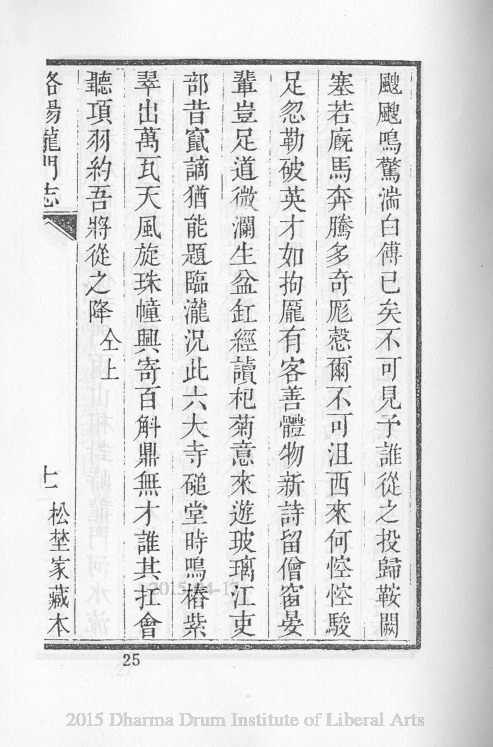 颼颼鳴驚湍白傅已矣不可見予誰從之投歸鞍闕
塞若廐馬奔騰多奇厖慤爾不可沮西來何悾悾駿
足忽勒破英才如拘厖有客善體物新詩留僧窗晏
輩豈足道微瀾生盆缸經讀杞菊意來遊玻璃江吏
部昔竄謫猶能題臨瀧況此六大寺磓堂時鳴樁紫
翠出萬瓦天風旋珠幢興寄百斛鼎無才誰其扛會
聽項羽約吾將從之降 仝上
洛陽龍門志
七 松埜家藏本
25
2015 Dharma Drum Institute of Liberal Arts